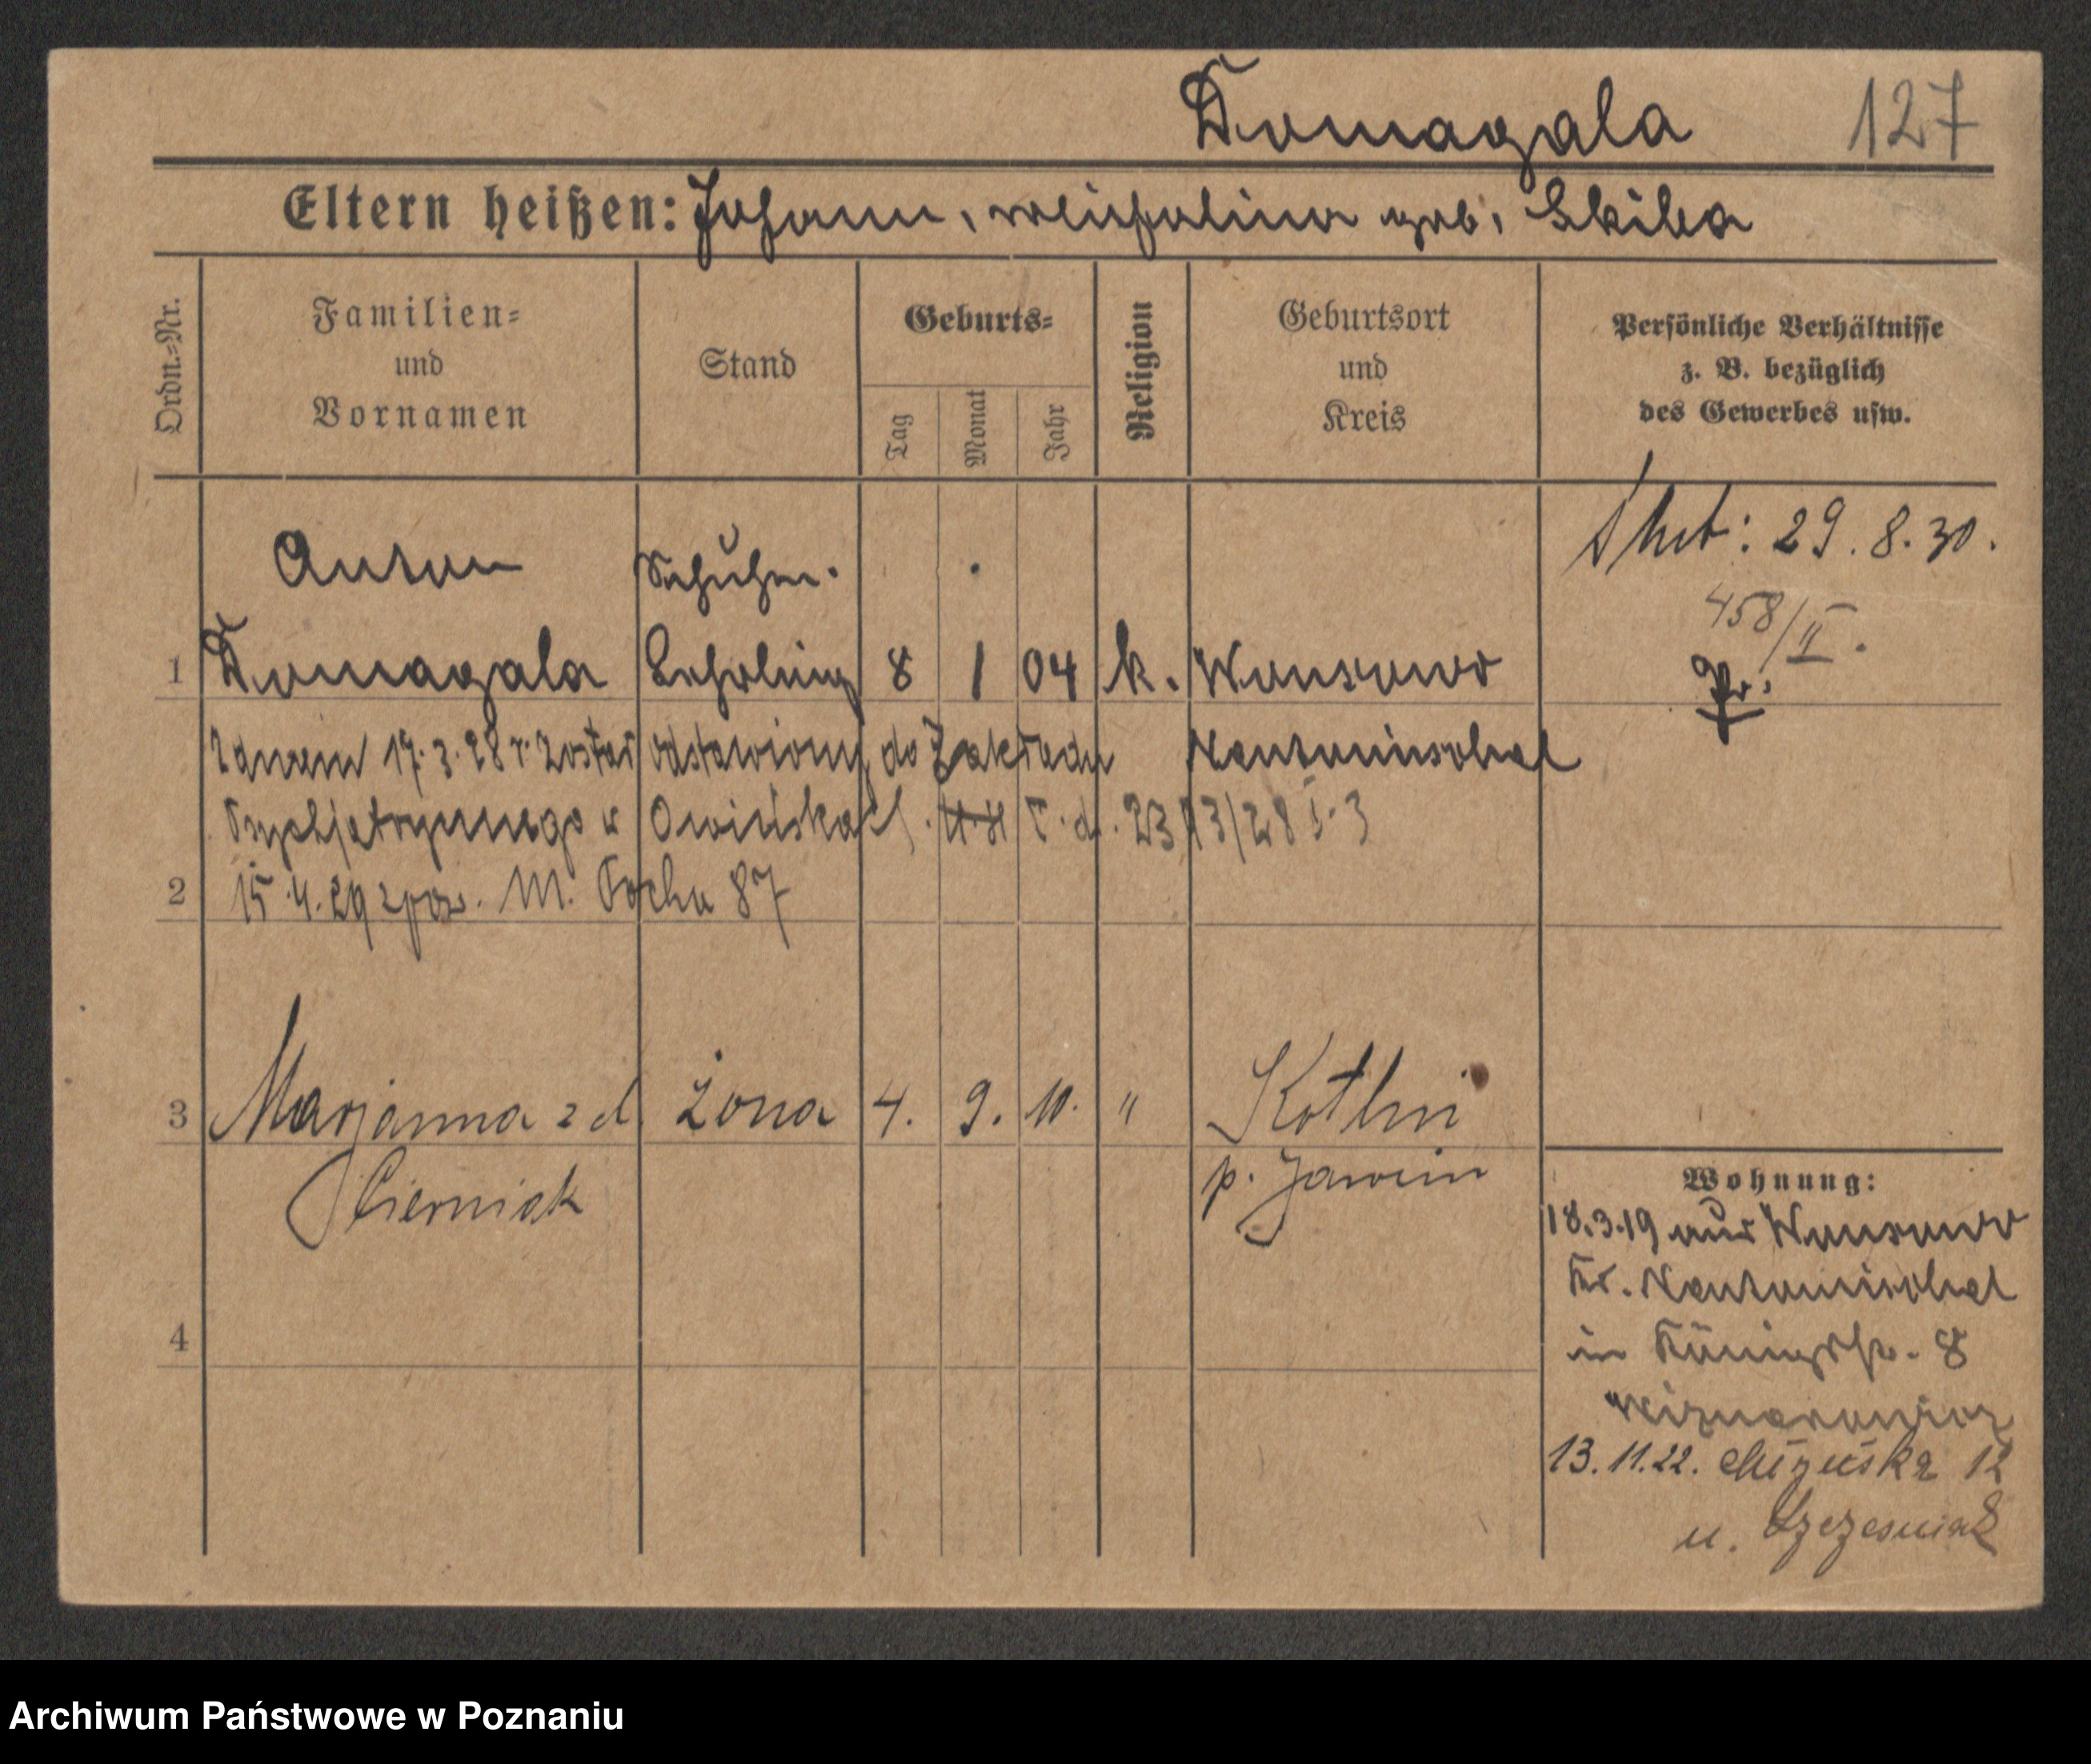 Domagala 127
Eltern heißen: Johann, geb. Skiba
Ordn.-Nr.
Familien-
und
Vornamen
Stand
Geburts-
Tag
Monat
Jahr
Religion
Geburtsort
und
Kreis
Persönliche Verhältnisse
z. B. bezüglich
des Gewerbes usw.
: 29.8.30.
458/II.
Anton Schuhm.
1 Domagala Lehrling 8 1 04 k. Wonsowo
17.3.28 r. został odstawiony do Zakładu Neutomischel
Psychjatrycznego w Owińskach.
2 15.4.29 M. Focha 87
3 Marjanna z d. żona 4. 9. 10. " Kotlin
Cierniak p. Jarocin
Wohnung:
18.3.19 aus Wonsowo
Kr. Neutomischel
in Königstr. 8
13.11.22. 12
u. Szczesniak
4
Archiwum Państwowe w Poznaniu